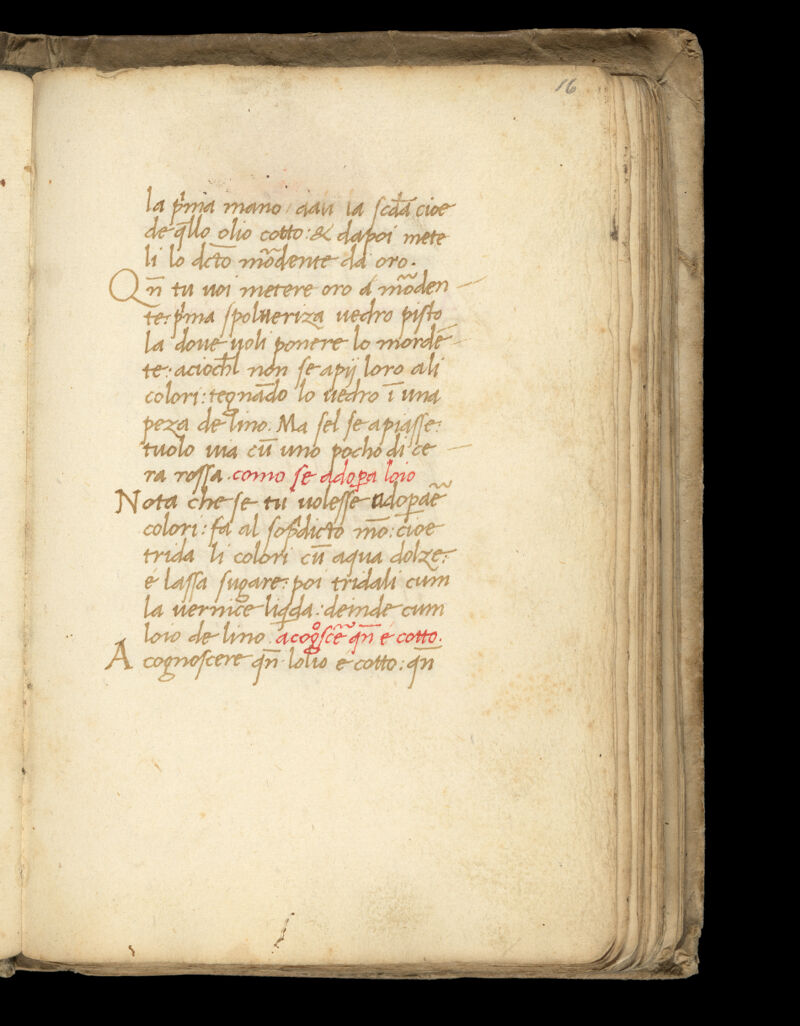 16
la p̄ma mano / dali la scd̄a cioe
de q̄llo olio cotto: & dapoi mete
li lo dct̄o mõdente da oro.
Qn̄ tu uoi metere oro a mõden
te: p̄ma spolueriza uedro pisto
la doue uoli ponere lo mordē
te: acioch̄l non se apij loro ali
colori: tegnādo lo uedro ī una
peza de lino. Ma sel se apiasse:
tuolo uia cū uno pocho di ce
ra rossa. como se adoꝑa loio
Nota che se tu uolesse adoꝑae᷉
colori: fa al sop̄dicto mō: cīoe
trida li colori cū aqua dolze:
é lassa sugare: poi tridali cum
la uernice liq̄da: deinde cum
loio de lino. a cogͦsce᷉ qn̄ é cotto.
A cognoscere qn̄ lolio e cotto: qn̄